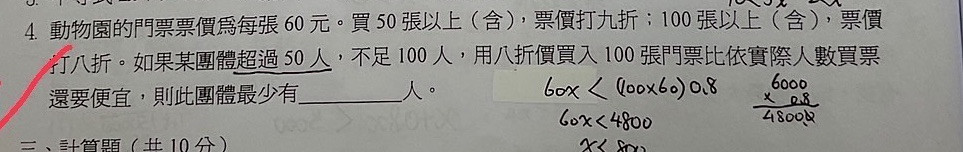 4. 動物園的門票票價爲每張 60 元。買 50 張以上（含），票價打九折；100 張以上（含），票價
打八折。如果某團體超過 50 人，不足 100 人，用八折價買入 100 張門票比依實際人數買票
還要便宜，則此團體最少有________人。
60x < (100x60)0.8
6000
x 0.8
4800.0
60x < 4800
x < 800
三、計算題（共 10 分）